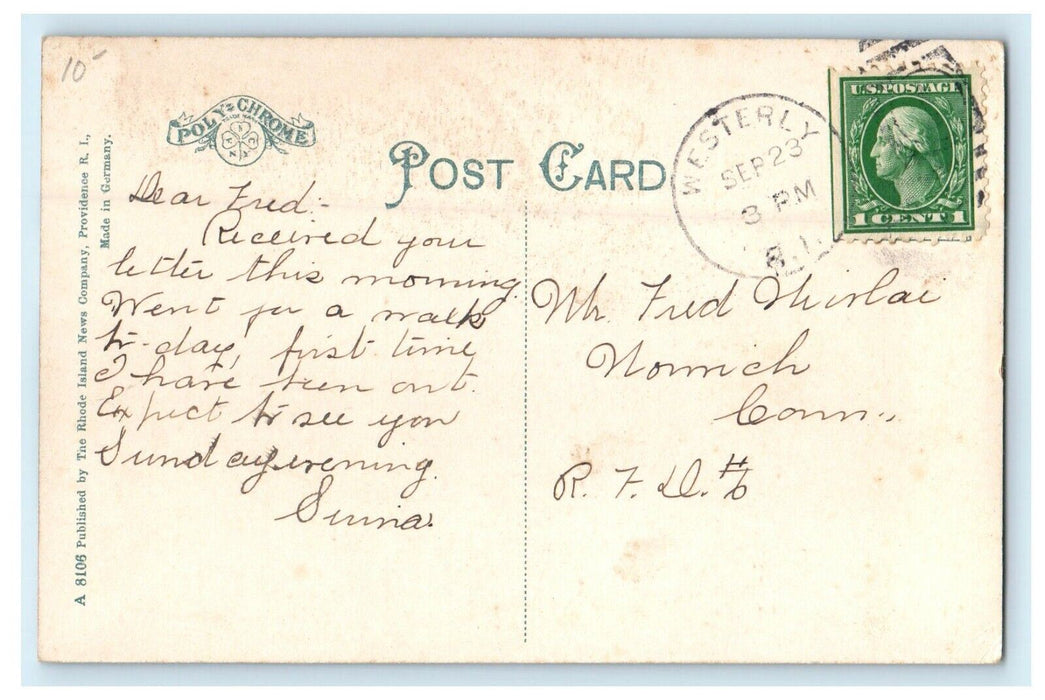 10-
POLY-CHROME
TRADE MARK
POST CARD
WESTERLY
SEP 23
3 PM
R.I.
U.S. POSTAGE
1 CENT 1
A 8106 Published by The Rhode Island News Company, Providence R. I.,
Made in Germany.
Dear Fred:-
Received your
letter this morning.
Went for a walk
to-day, first time
I have been out.
Expect to see you
Sunday evening.
Mr. Fred
Norwich
Conn.,
R. F. D. #6